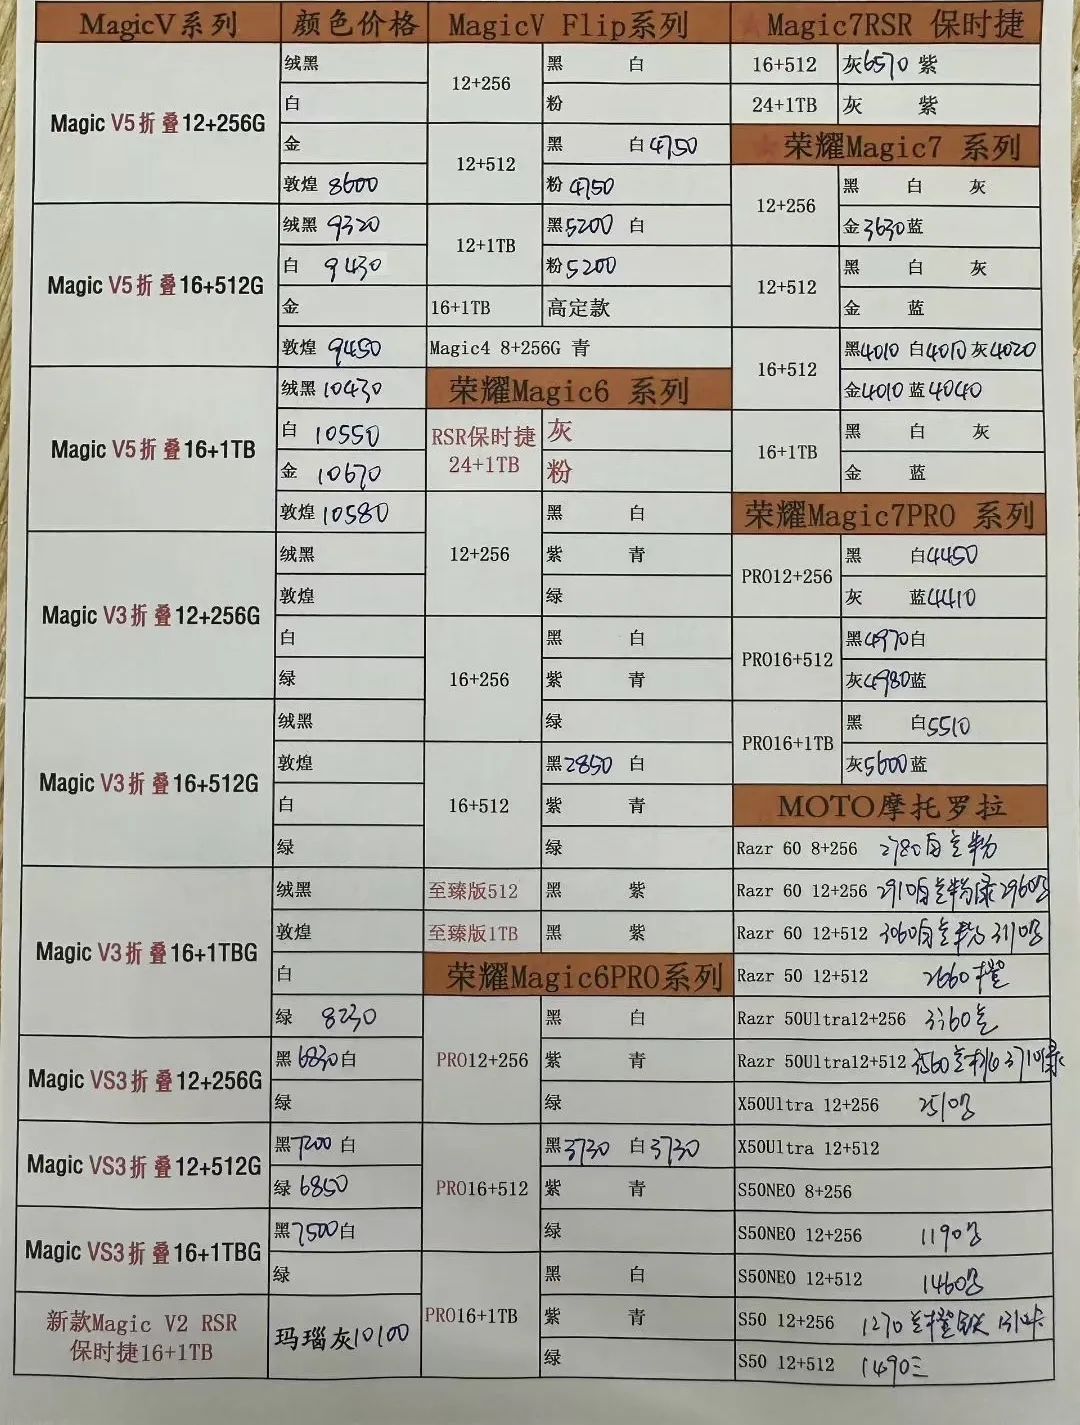 MagicV系列 颜色价格
Magic V5折叠12+256G
绒黑
白
金
敦煌 8600
Magic V5折叠16+512G
绒黑 9320
白 9430
金
敦煌 9450
Magic V5折叠16+1TB
绒黑 10430
白 10550
金 10670
敦煌 10580
Magic V3折叠12+256G
绒黑
敦煌
白
绿
Magic V3折叠16+512G
绒黑
敦煌
白
绿
Magic V3折叠16+1TBG
绒黑
敦煌
白
绿 8230
Magic VS3折叠12+256G
黑6830白
绿
Magic VS3折叠12+512G
黑7200 白
绿 6850
Magic VS3折叠16+1TBG
黑7500白
绿
新款Magic V2 RSR
保时捷16+1TB
玛瑙灰10100
MagicV Flip系列
12+256
黑 白
粉
12+512
黑 白4750
粉 4750
12+1TB
黑5200 白
粉5200
16+1TB 高定款
Magic4 8+256G 青
荣耀Magic6 系列
RSR保时捷
24+1TB
灰
粉
12+256
黑 白
紫 青
绿
16+256
黑 白
紫 青
绿
16+512
黑2850 白
紫 青
绿
至臻版512 黑 紫
至臻版1TB 黑 紫
荣耀Magic6PRO系列
PRO12+256
黑 白
紫 青
绿
PRO16+512
黑3730 白3730
紫 青
绿
PRO16+1TB
黑 白
紫 青
绿
Magic7RSR 保时捷
16+512 灰6570 紫
24+1TB 灰 紫
荣耀Magic7 系列
12+256
黑 白 灰
金3630蓝
12+512
黑 白 灰
金 蓝
16+512
黑4010 白4010 灰4020
金4010 蓝4040
16+1TB
黑 白 灰
金 蓝
荣耀Magic7PRO 系列
PRO12+256
黑 白4450
灰 蓝4410
PRO16+512
黑4970白
灰4980蓝
PRO16+1TB
黑 白5510
灰5600蓝
MOTO摩托罗拉
Razr 60 8+256 2780白兰粉
Razr 60 12+256 2910白兰粉绿2960
Razr 60 12+512 3060白兰粉3110
Razr 50 12+512 2660橙
Razr 50Ultra12+256 3360兰
Razr 50Ultra12+512 3560兰桃3710绿
X50Ultra 12+256 2510
X50Ultra 12+512
S50NEO 8+256
S50NEO 12+256 1190
S50NEO 12+512 1460
S50 12+256 1270兰橙
S50 12+512 1490三